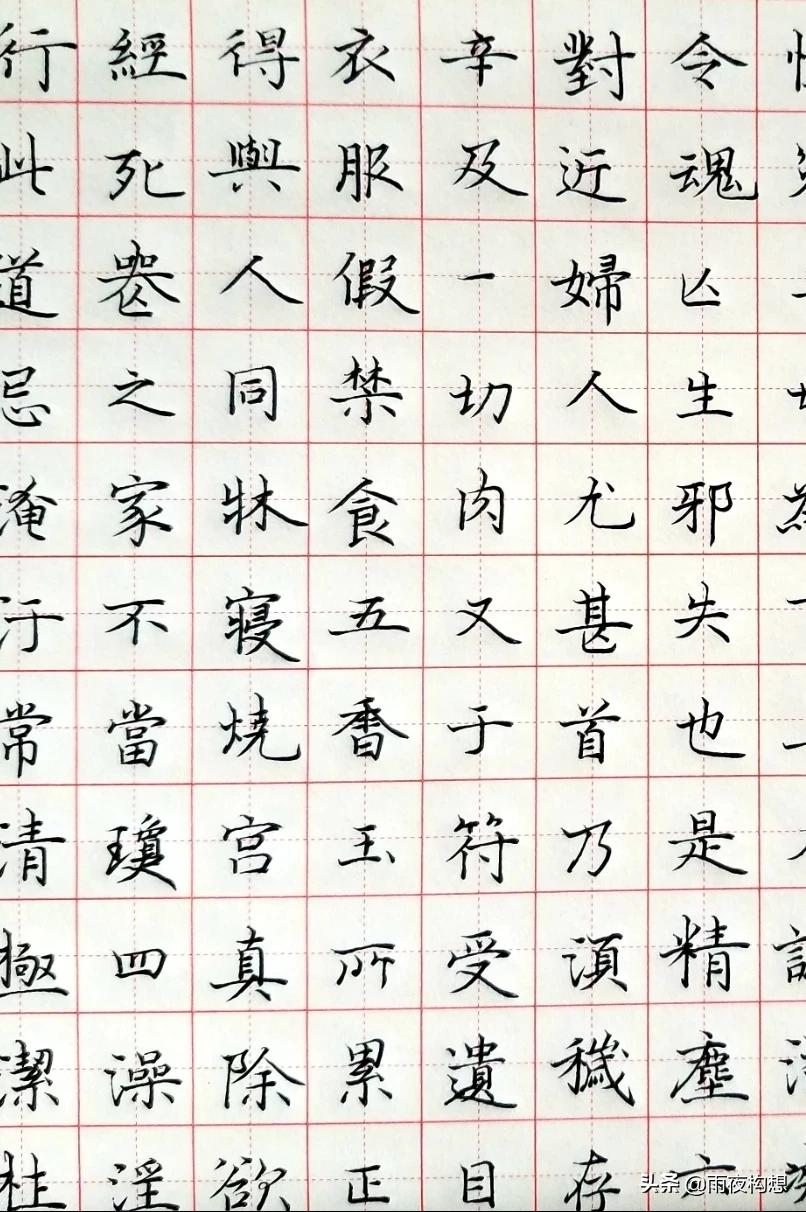 行此道忌淹汙
經死喪之家不
得與人同牀寢
衣服假禁食五
辛及一切肉又
對近婦人尤甚
令魂亡生邪失
常當燒香于首也
清瓊宮玉符乃是
極四真所受須精
潔澡除累遺穢塵
杜淫欲正目存六
头条 @雨夜构想